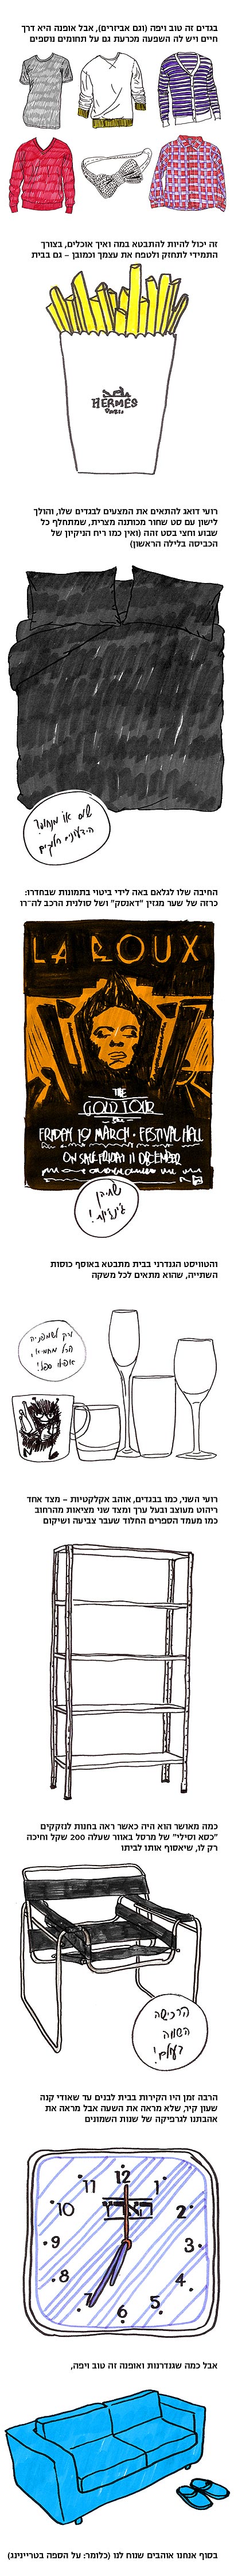 בגדים זה טוב ויפה (וגם אביזרים), אבל אופנה היא דרך
חיים ויש לה השפעה מכרעת גם על תחומים נוספים
זה יכול להיות להתבטא במה ואיך אוכלים, בצורך
התמידי לתחזק ולטפח את עצמך וכמובן – גם בבית
HERMÈS
PARIS
רועי דואג להתאים את המצעים לבגדים שלו, והולך
לישון עם סט שחור מכותנה מצרית, שמתחלף כל
שבוע וחצי בסט זהה (ואין כמו ריח הניקיון של
הכביסה בלילה הראשון)
החיבה שלו לגלאם באה לידי ביטוי בתמונות שבחדרו:
כרזה של שער מגזין "דאנסק" ושל סולנית הרכב לה־רו
LA ROUX
THE
GOLD TOUR
FRIDAY 19 MARCH · FESTIVAL HALL
ON SALE FRIDAY 11 DECEMBER
והטוויסט הגנדרני בבית מתבטא באוסף כוסות
השתייה, שהוא מתאים לכל משקה
רועי השני, כמו בבגדים, אוהב אקלקטיות – מצד אחד
ריהוט מעוצב ובעל ערך ומצד שני מציאות מהרחוב
כמו מעמד הספרים החלוד שעבר צביעה ושיקום
כמה מאושר הוא היה כאשר ראה בחנות לנזקקים
"כסא וסילי" של מרסל באוור שעלה 200 שקל וחיכה
רק לו, שיאסוף אותו לביתו
הרכישה
השווה
בעולם!
הרבה זמן היו הקירות בבית לבנים עד שאודי קנה
שעון קיר, שלא מראה את השעה אבל מראה את
אהבתנו לגרפיקה של שנות השמונים
12
11 1
10 2
9 3
8 4
7 5
6
אבל כמה שגנדרנות ואופנה זה טוב ויפה,
בסוף אנחנו אוהבים שנוח לנו (כלומר: על הספה בטריינינג)